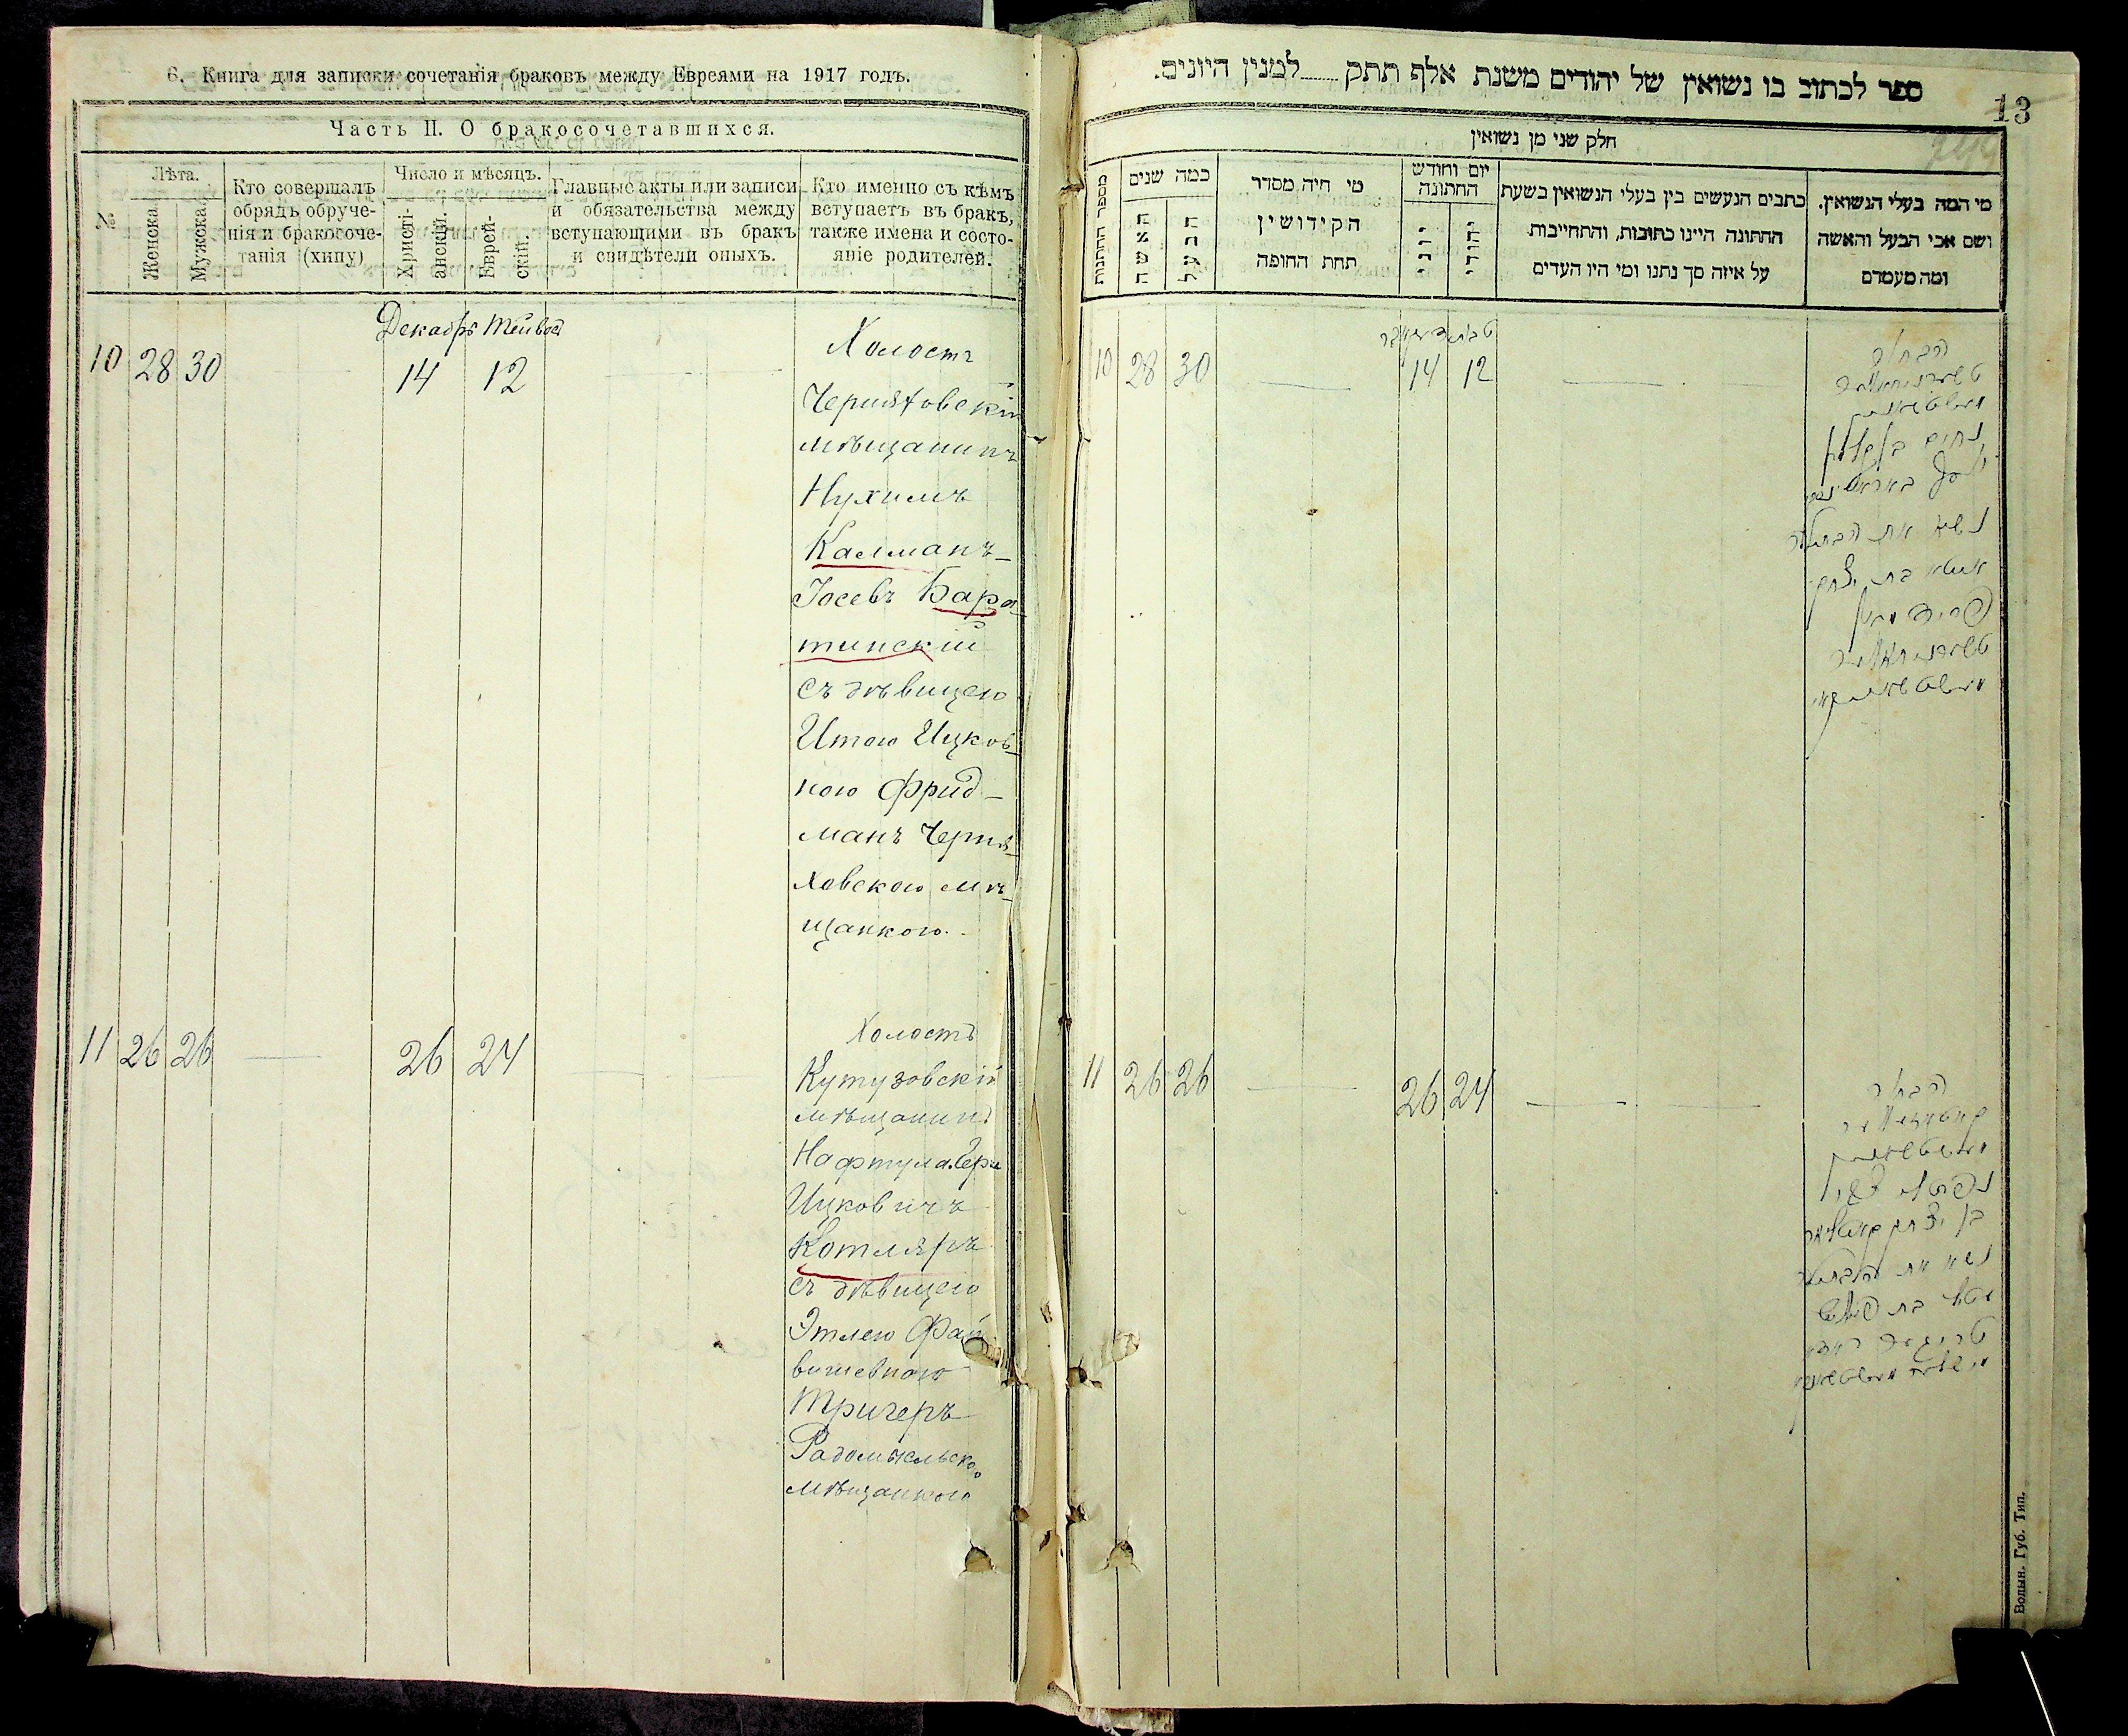 6. Книга для записки сочетанія браковъ между Евреями на 1917 годъ.
Часть II. О бракосочетавшихся.
№
Лѣта.
Женска
Мужска
Кто совершалъ
обрядъ обруче-
нія и бракосоче-
танія (хипу)
Число и мѣсяцъ.
Христі-
анскій.
Еврей-
скій.
Главные акты или записи
и обязательства между
вступающими въ бракъ
и свидѣтели оныхъ.
Кто именно съ кѣмъ
вступаетъ въ бракъ,
также имена и состо-
яніе родителей.
Декабрь Тейвосъ
10 28 30 14 12
Холостъ
Черняховскій
мѣщанинъ
Нухимъ
Калманъ-
Іосевъ Баро-
тинскій
съ дѣвицею
Итою Ицков-
ною Фрид-
манъ Черня-
ховскою мѣ-
щанкою.
11 26 26 26 24
Холостъ
Кутузовскій
мѣщанинъ
Нафтула Герш
Ицковичъ
Котляръ
съ дѣвицею
Этлею Фай
вишевною
Тригеръ
Радомысльскою
мѣщанкою
ספר לכתוב בו נשואין של יהודים משנת אלף תתק למנין היונים.
13
חלק שני מן נשואין
מספר החתונות
כמה שנים
האשה
הבעל
מי היה מסדר
הקידושין
תחת החופה
יום וחודש
החתונה
יוני
יהודי
כתבים הנעשים בין בעלי הנשואין בשעת
החתונה היינו כתובות, והתחייבות
על איזה סך נתנו ומי היו העדים
מי המה בעלי הנשואין.
ושם אבי הבעל והאשה
ומה מעמדם
10 28 30 14 12
הבחור
נחום קלמן
יוסף
נשא את הבתולה
איטא בת יצחק
פרידמאן
11 26 26 26 24
הבחור
נפתלי
בן יצחק קאטליאר
נשא את הבתולה
עטל בת פייוויש
Волын. Губ. Тип.